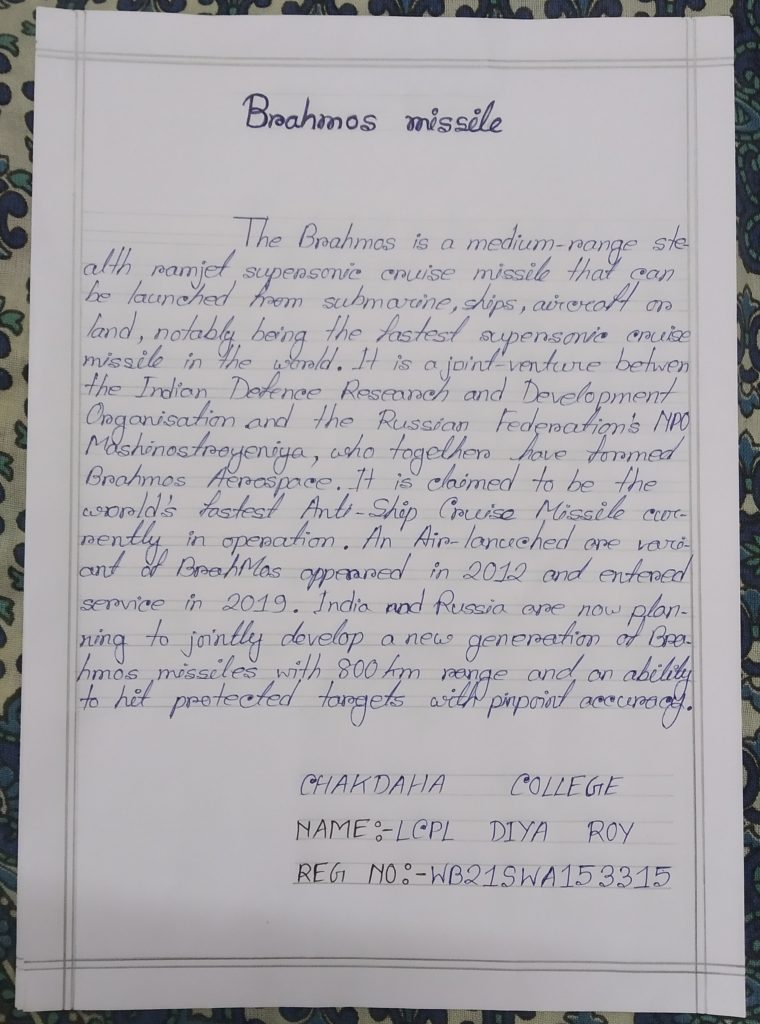 Brahmos missile
The Brahmos is a medium-range ste-
alth ramjet supersonic cruise missile that can
be launched from submarine, ships, aircraft or
land, notably being the fastest supersonic cruise
missile in the world. It is a joint-venture betwen
the Indian Defence Research and Development
Organisation and the Russian Federation's NPO
Mashinostroyeniya, who together have formed
Brahmos Aerospace. It is claimed to be the
world's fastest Anti-Ship Cruise Missile cur-
rently in operation. An Air-lancuhed are vari-
ant of BrahMos apperared in 2012 and entered
service in 2019. India and Russia are now plan-
ning to jointly develop a new generation of Bra-
hmos missiles with 800 km range and an ability
to hit protected targets with pinpoint accuracy.
CHAKDAHA COLLEGE
NAME:-LCPL DIYA ROY
REG NO:-WB21SWA153315